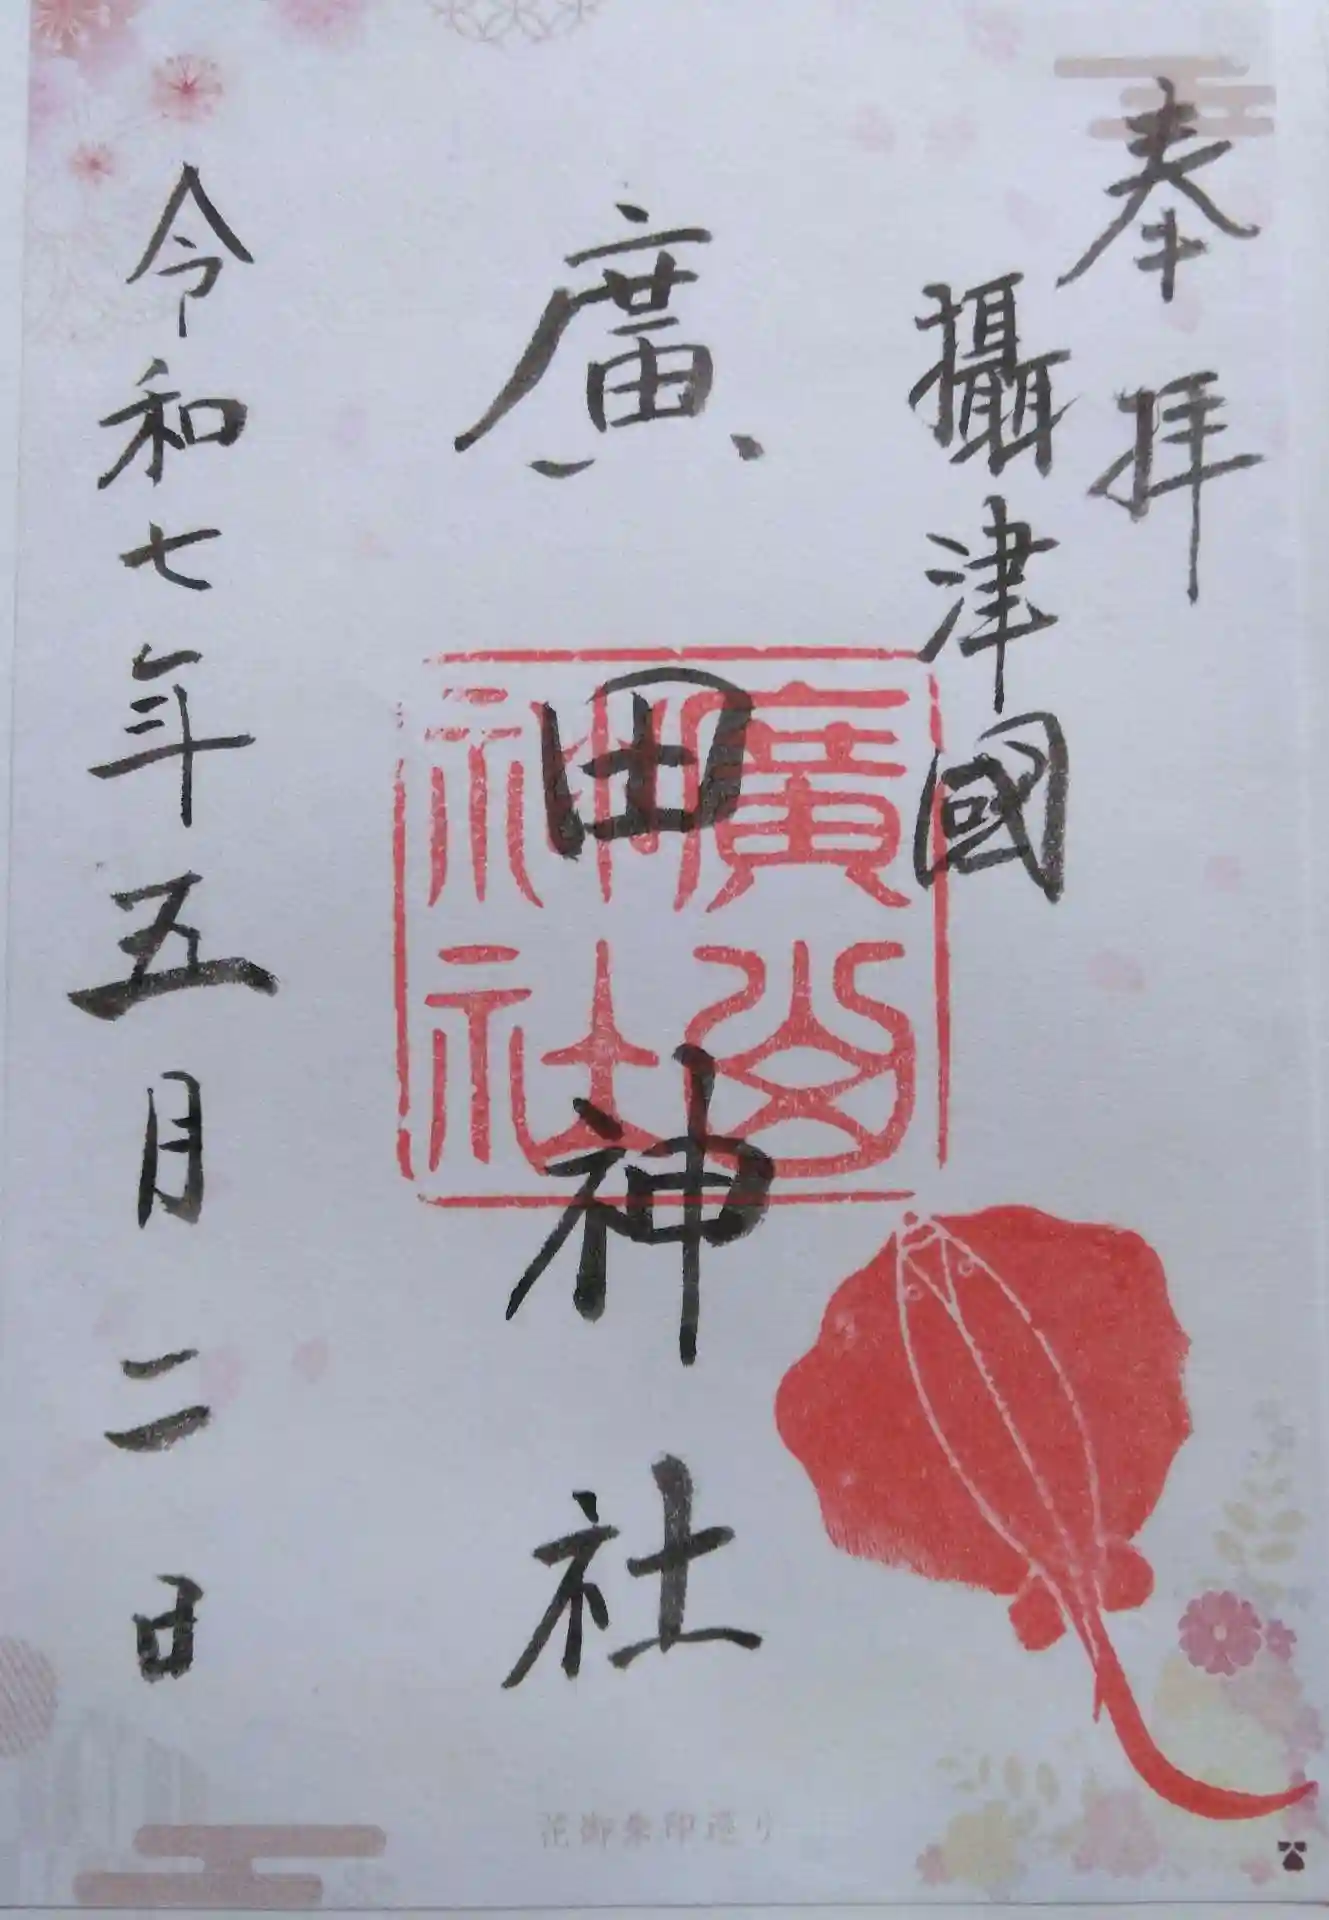 奉拝
攝津國
廣田神社
廣田神社
令和七年五月二日
花御朱印巡り